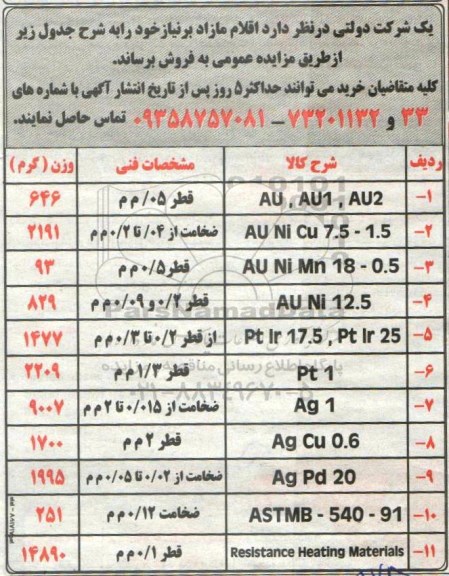 یک شرکت دولتی درنظر دارد اقلام مازاد برنیازخود رابه شرح جدول زیر
ازطریق مزایده عمومی به فروش برساند.
کلیه متقاضیان خرید می توانند حداکثر۵ روز پس از تاریخ انتشار آگهی با شماره های
۳۳ و ۷۳۲۰۱۱۳۲ - ۰۹۳۵۸۷۵۷۰۸۱ تماس حاصل نمایند.
ردیف شرح کالا مشخصات فنی وزن (گرم)
۱- AU , AU1 , AU2 قطر ۰۵/ م م ۶۴۶
۲- AU Ni Cu 7.5 - 1.5 ضخامت از ۰۴/ تا ۰/۲ م م ۲۱۹۱
۳- AU Ni Mn 18 - 0.5 قطر ۰/۵ م م ۹۳
۴- AU Ni 12.5 قطر ۰/۲ و ۰/۰۹ م م ۸۲۹
۵- Pt Ir 17.5 , Pt Ir 25 از قطر ۰/۲ تا ۰/۳ م م ۱۴۷۷
۶- Pt 1 قطر ۱/۳ م م ۲۲۰۹
۷- Ag 1 ضخامت از ۰/۰۱۵ تا ۲ م م ۹۰۰۷
۸- Ag Cu 0.6 قطر ۲ م م ۱۷۰۰
۹- Ag Pd 20 ضخامت از ۰/۰۲ تا ۰/۰۵ م م ۱۹۹۵
۱۰- ASTMB - 540 - 91 ضخامت ۰/۱۲ م م ۲۵۱
۱۱- Resistance Heating Materials قطر ۰/۱ م م ۱۴۸۹۰
ParsNamadData
پایگاه اطلاع رسانی مناقصه و مزایده
۰۲۱-۸۸۳۴۹۶۷۰-۵